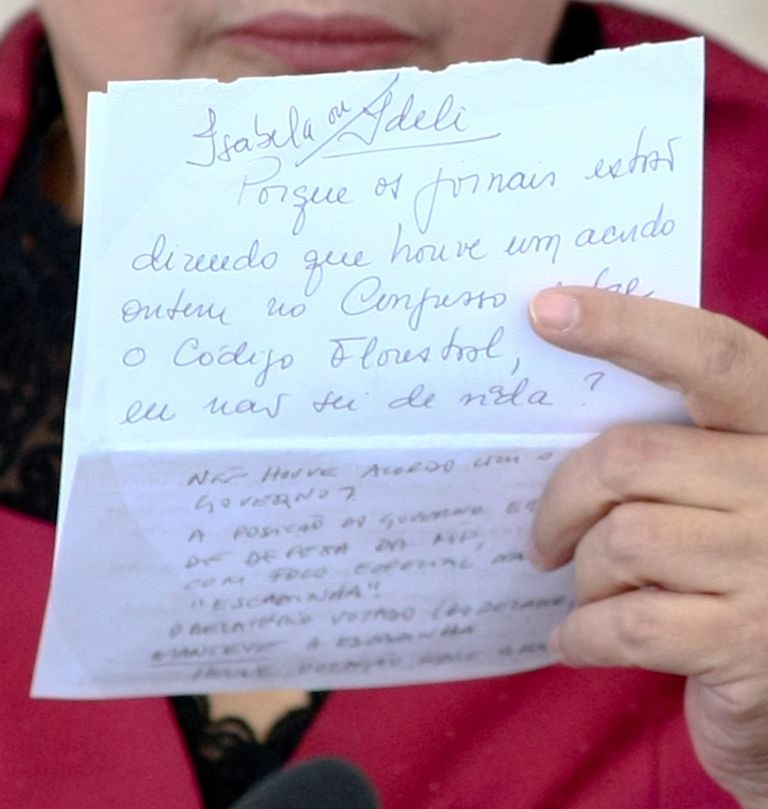 Isabela ou Ideli
Porque os jornais estão
dizendo que houve um acordo
ontem no Congresso sobre
o Código Florestal,
eu não sei de nada?
NÃO HOUVE ACORDO COM O
GOVERNO?
A POSIÇÃO DO GOVERNO É
DE DEFESA DA MP,
COM FOCO ESPECIAL NA
"ESCADINHA"!
O RELATÓRIO VOTADO
MANTEVE A ESCADINHA
HOUVE VOTAÇÃO